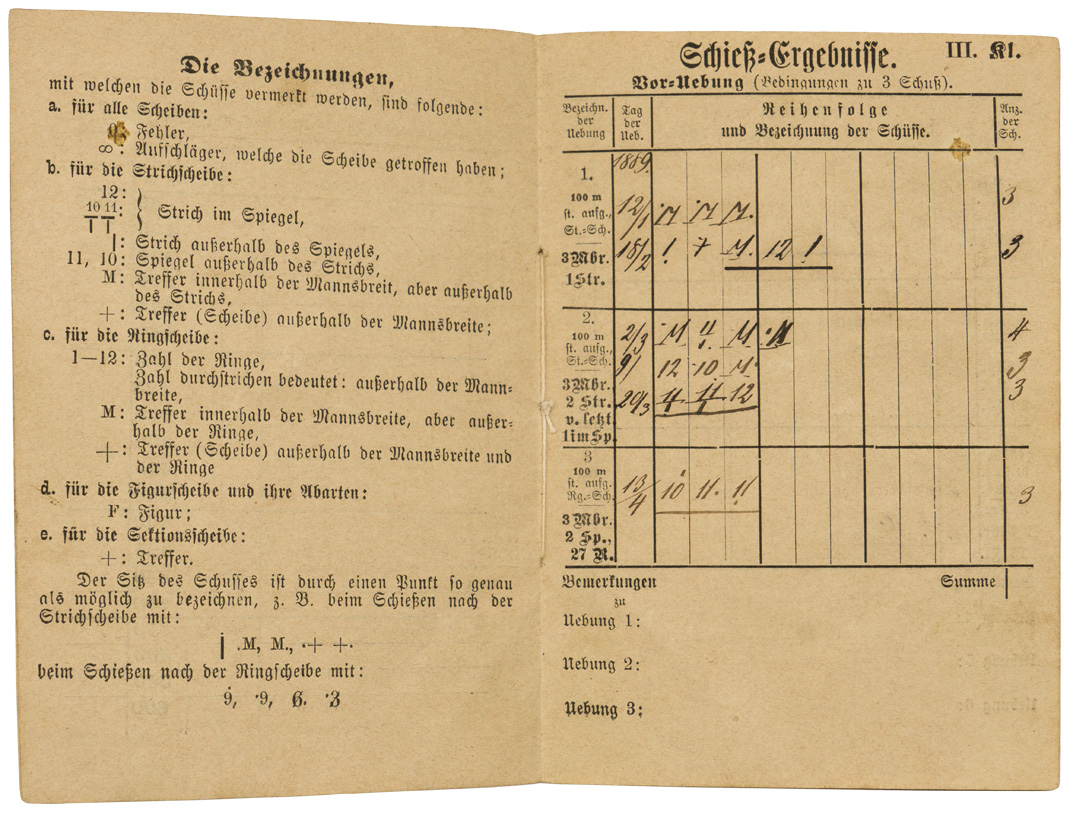 Die Bezeichnungen,
mit welchen die Schüsse vermerkt werden, sind folgende:
a. für alle Scheiben:
0: Fehler,
∞: Aufschläger, welche die Scheibe getroffen haben;
b. für die Strichscheibe:
12:
10 11: Strich im Spiegel,
|: Strich außerhalb des Spiegels,
11, 10: Spiegel außerhalb des Strichs,
M: Treffer innerhalb der Mannsbreit, aber außerhalb
des Strichs,
+: Treffer (Scheibe) außerhalb der Mannsbreite;
c. für die Ringscheibe:
1—12: Zahl der Ringe,
Zahl durchstrichen bedeutet: außerhalb der Mann-
breite,
M: Treffer innerhalb der Mannsbreite, aber außer-
halb der Ringe,
+: Treffer (Scheibe) außerhalb der Mannsbreite und
der Ringe
d. für die Figurscheibe und ihre Abarten:
F: Figur;
e. für die Sektionsscheibe:
+: Treffer.
Der Sitz des Schusses ist durch einen Punkt so genau
als möglich zu bezeichnen, z. B. beim Schießen nach der
Strichscheibe mit:
| .M, M., ·+ +·
beim Schießen nach der Ringscheibe mit:
9, ·9, 6. ·3
Schieß-Ergebnisse. III. Kl.
Vor-Uebung (Bedingungen zu 3 Schuß).
Bezeichn. der Uebung
Tag der Ueb.
Reihenfolge
und Bezeichnung der Schüsse.
Anz. der Sch.
1889.
1.
100 m
st. aufg., 12/1 M M M. 3
St.-Sch.
3 Mbr. 18/2 ! + M. 12 ! 3
1 Str.
2.
100 m 2/3 M 4 M M 4
st. aufg.,
St.-Sch. 9/ 12 10 M 3
3 Mbr.
2 Str. 29/3 4 11 12 3
v. letzt.
1 im Sp.
3
100 m
st. aufg. 13/4 10 11. 11 3
Rg.-Sch.
3 Mbr.
2 Sp.,
27 R.
Bemerkungen Summe
zu
Uebung 1:
Uebung 2:
Uebung 3: